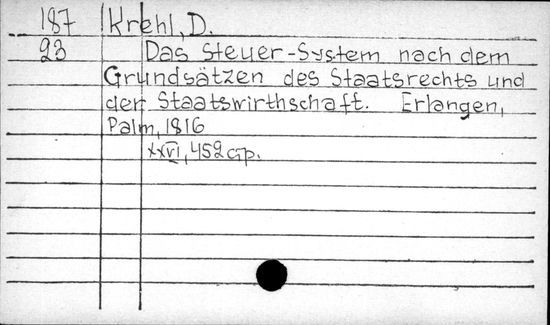 187 Krehl, D.
23 Das Steuer-System nach dem
Grundsätzen des Staatsrechts und
der Staatswirthschaft. Erlangen,
Palm, 1816
XXVI, 452 стр.